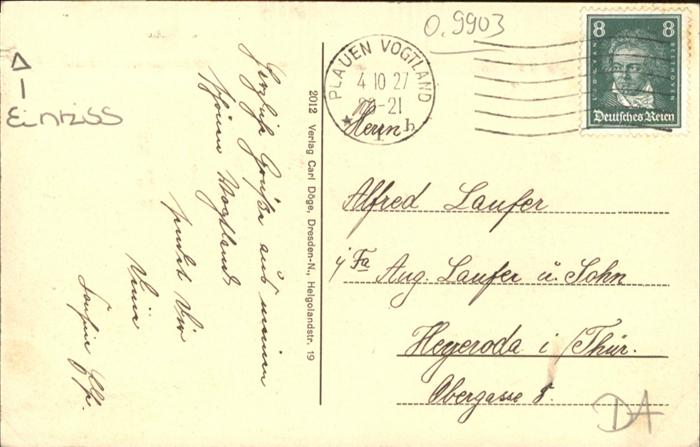 0.9903
8 8
BEETHOVEN
Deutsches Reich
PLAUEN VOGTLAND
4 10 27
-21
* h
Einriss
Herzliche Grüße aus meinem
schönen Vogtland
sendet Dir
Deine
2012 Verlag Carl Döge, Dresden-N., Helgolandstr. 19
Herrn
Alfred Laufer
i/ Fa Aug. Laufer u. Sohn
Heyeroda i/Thür.
Obergasse 8.
DA